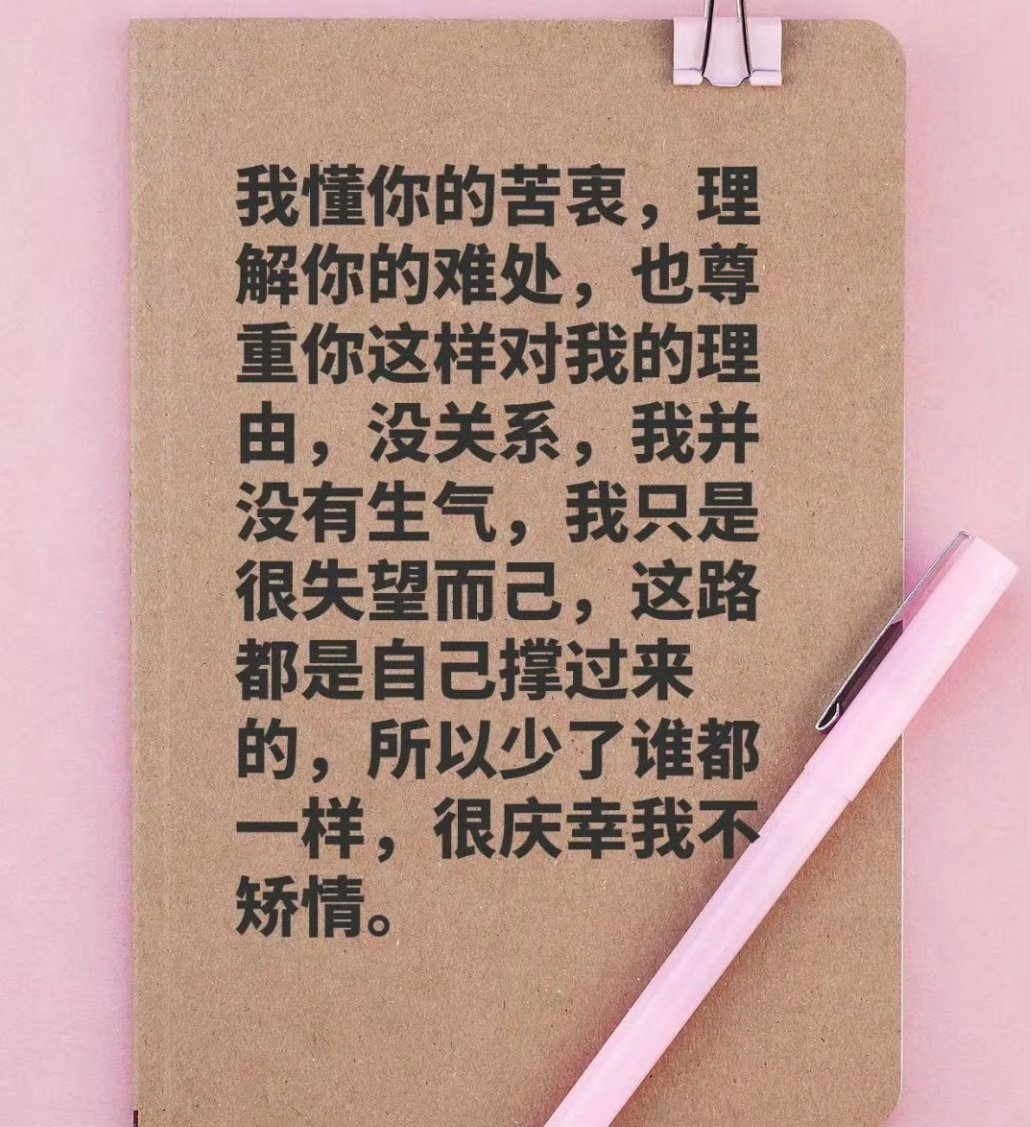 我懂你的苦衷，理
解你的难处，也尊
重你这样对我的理
由，没关系，我并
没有生气，我只是
很失望而己，这路
都是自己撑过来
的，所以少了谁都
一样，很庆幸我不
矫情。